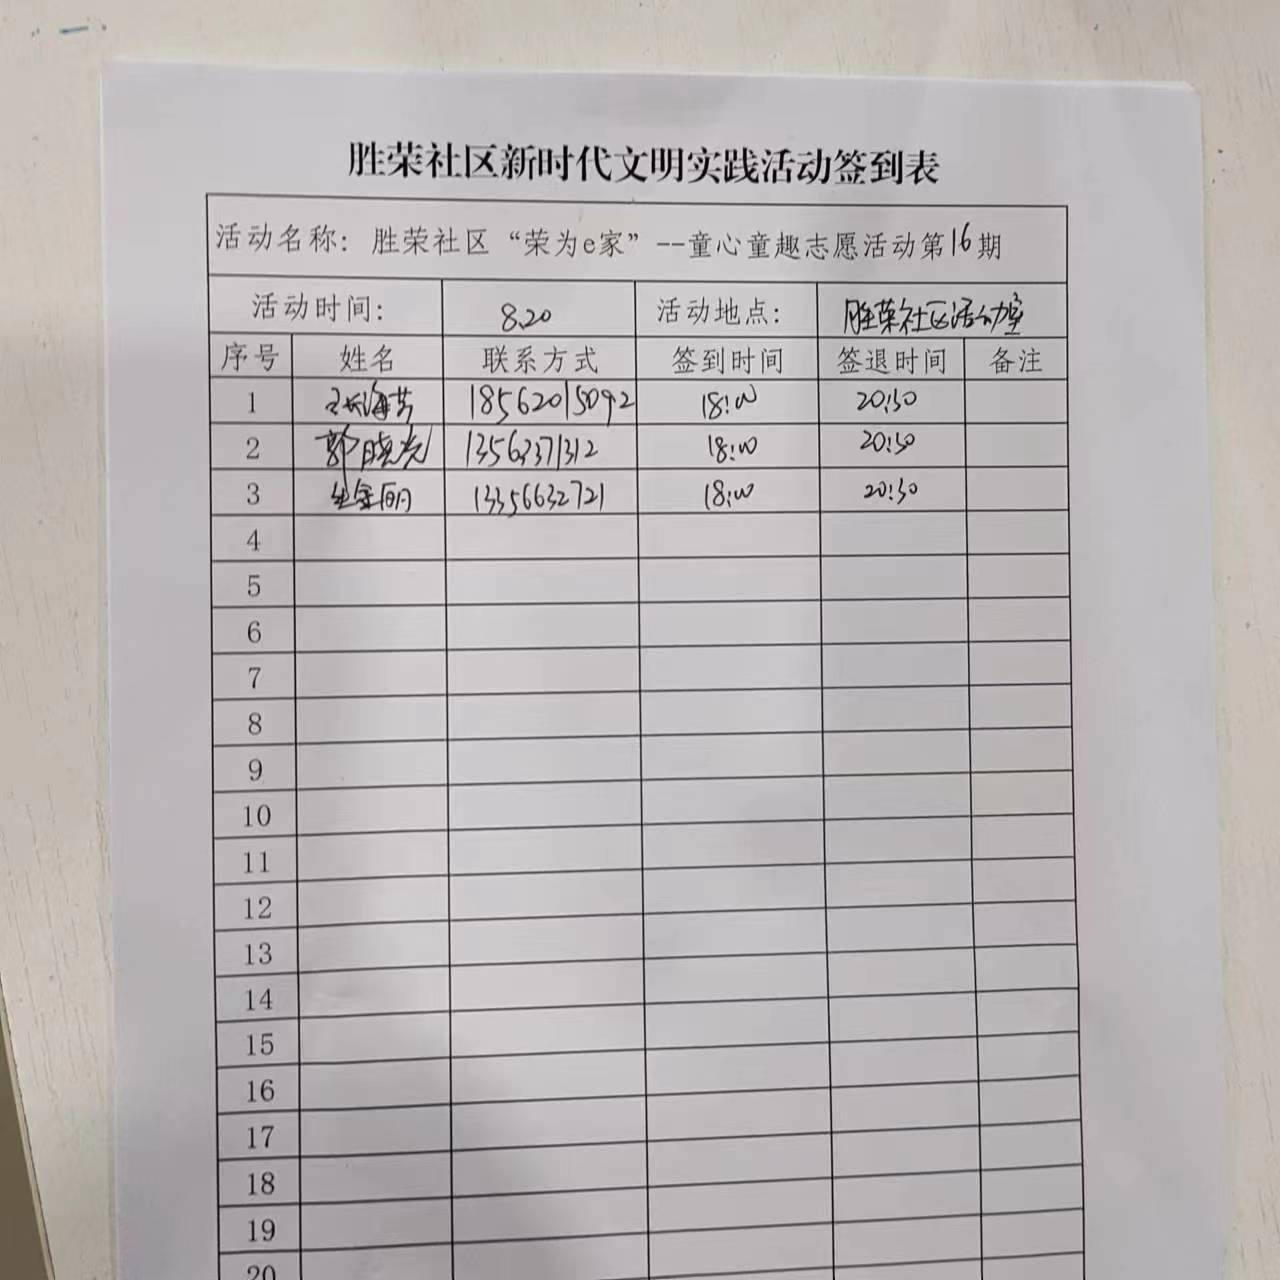 胜荣社区新时代文明实践活动签到表
活动名称：胜荣社区“荣为e家”--童心童趣志愿活动第16期
活动时间： 8.20 活动地点： 胜荣社区活动室
序号 姓名 联系方式 签到时间 签退时间 备注
1 18562015092 18:00 20:30
2 郭晓光 13563371312 18:00 20:30
3 13356632721 18:00 20:30
4
5
6
7
8
9
10
11
12
13
14
15
16
17
18
19
20